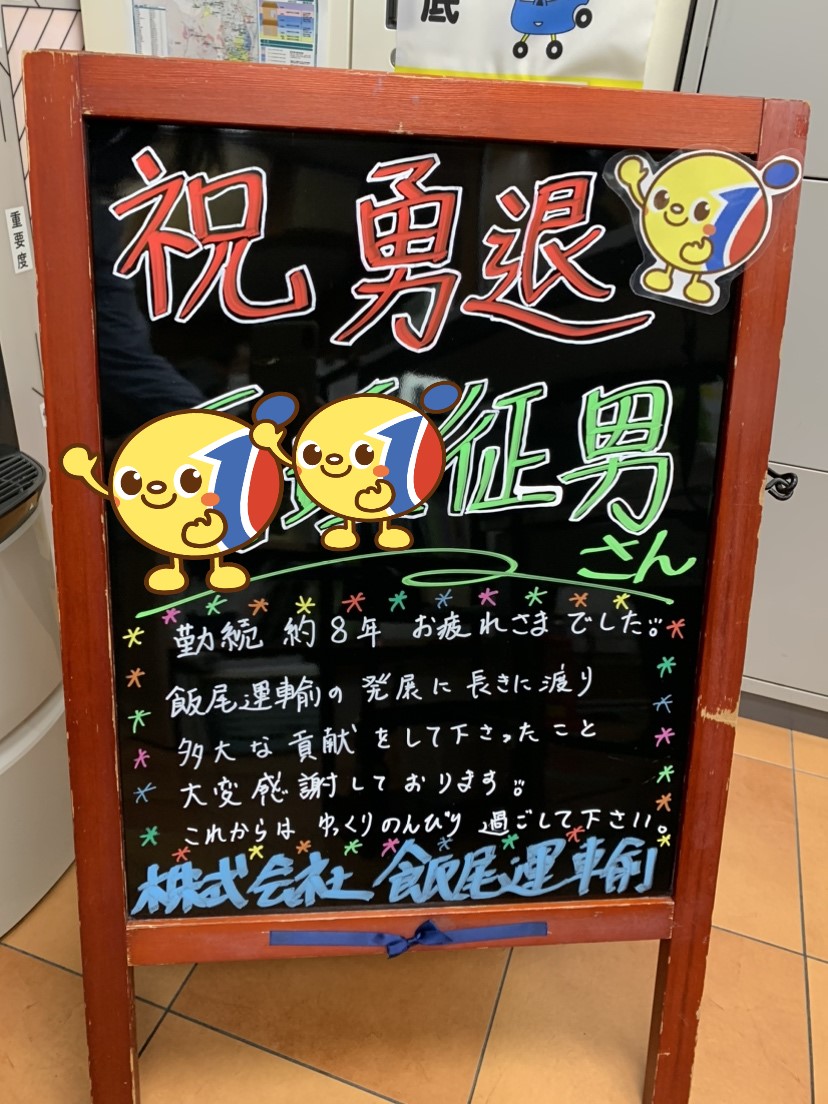 底
重要度
祝 勇退
征男
さん
勤続 約8年 お疲れさまでした。
飯尾運輸の発展に長きに渡り
多大な貢献をして下さったこと
大変感謝しております。
これからは ゆっくりのんびり 過ごして下さい。
株式会社 飯尾運輸